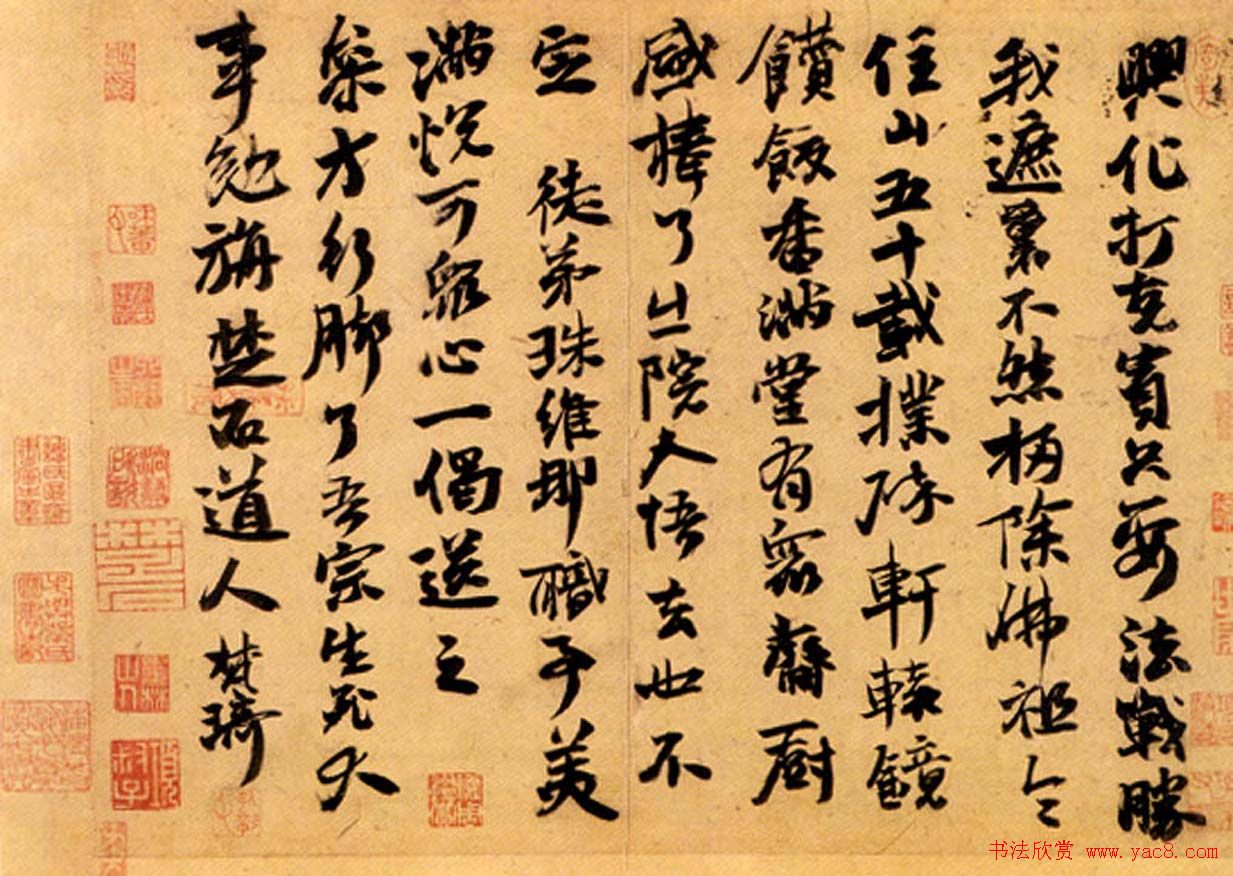 興化打克賓只要法戰勝
我遮裏不然柄除佛祖令
住山五十載撲碎軒轅鏡
饡飯香滿堂有眾馨厨
盛棒了出院大悟去也不
定 徒弟珠維那職予美
滿悅可眾心一偈送之
參方行脚了吾宗生死大
事勉旃楚石道人梵琦
书法欣赏 www.yac8.com